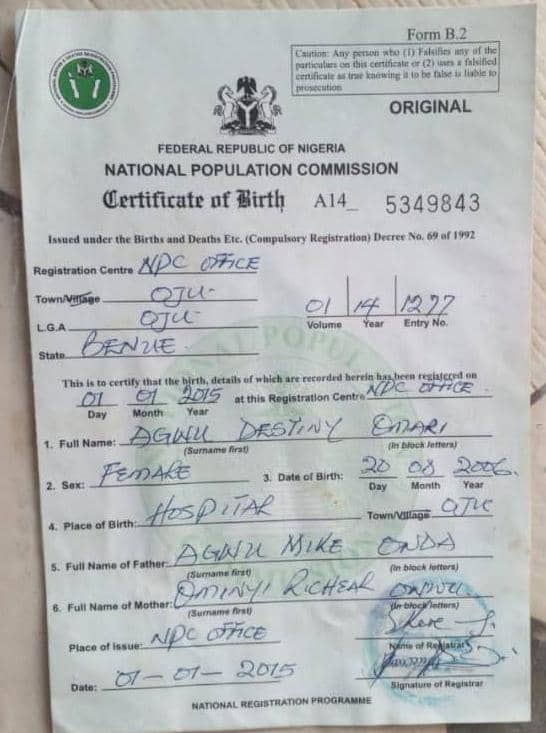 Form B.2
Caution: Any person who (1) Falsifies any of the
particulars on this certificate or (2) uses a falsified
certificate as true knowing it to be false is liable to
prosecution
ORIGINAL
FEDERAL REPUBLIC OF NIGERIA
NATIONAL POPULATION COMMISSION
Certificate of Birth A14_ 5349843
Issued under the Births and Deaths Etc. (Compulsory Registration) Decree No. 69 of 1992
Registration Centre NPC OFFICE
Town/Village OJU
L.G.A OJU
01 14 1277
Volume Year Entry No.
State BENUE
This is to certify that the birth, details of which are recorded herein has been registered on
01 01 2015 at this Registration Centre NPC OFFICE
Day Month Year
1. Full Name: AGWU DESTINY OMARI
(Surname first) (In block letters)
2. Sex: FEMALE 3. Date of Birth: 20 08 2006
Day Month Year
4. Place of Birth: HOSPITAL Town/Village OJU
5. Full Name of Father: AGWU MIKE ONDA
(Surname first) (In block letters)
6. Full Name of Mother: OMINYI RICHEAL
(Surname first) (In block letters)
Place of Issue: NPC OFFICE
Name of Registrar
Date: 01-01-2015
Signature of Registrar
NATIONAL REGISTRATION PROGRAMME